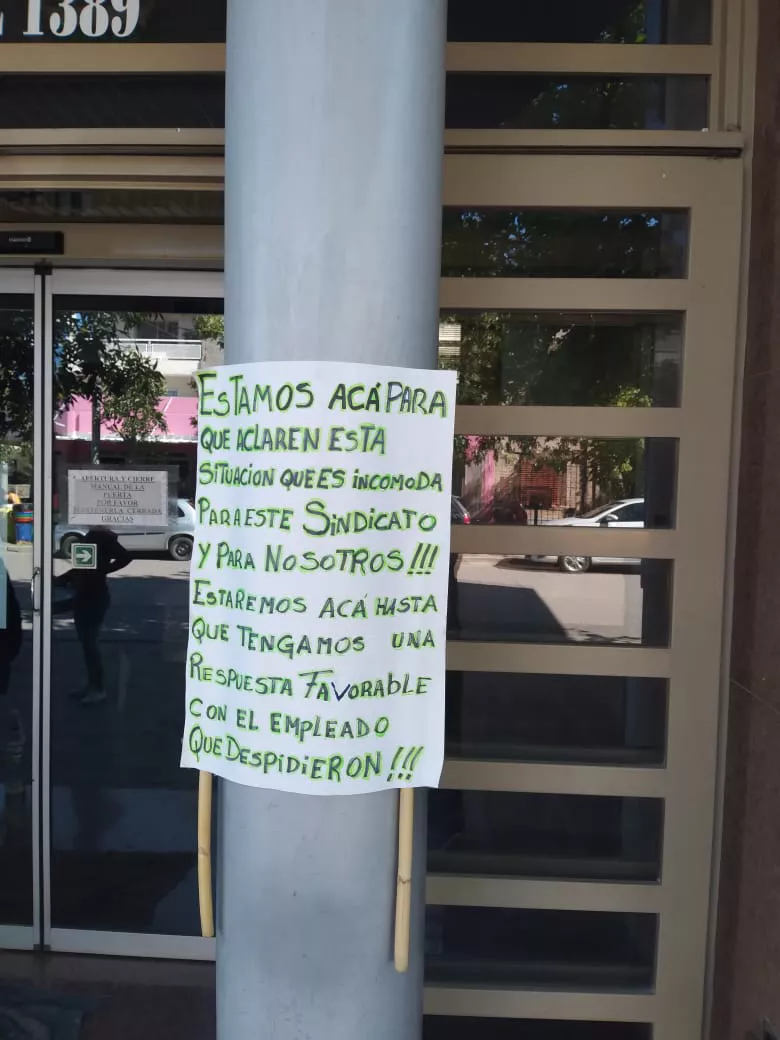 1389
ESTAMOS ACÁ PARA
QUE ACLAREN ESTA
SITUACION QUE ES INCOMODA
PARA ESTE SINDICATO
Y PARA NOSOTROS!!!
ESTAREMOS ACÁ HASTA
QUE TENGAMOS UNA
RESPUESTA FAVORABLE
CON EL EMPLEADO
QUE DESPIDIERON!!!
APERTURA Y CIERRE
MANUAL DE LA
PUERTA
POR FAVOR
MANTENERLA CERRADA
GRACIAS